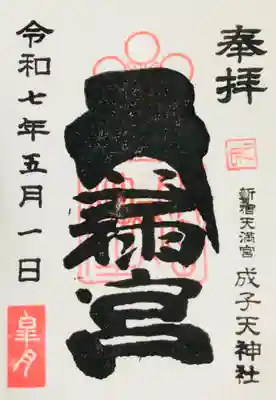 奉拝
新宿天満宮
成子天神社
天満宮
令和七年五月一日
皐月